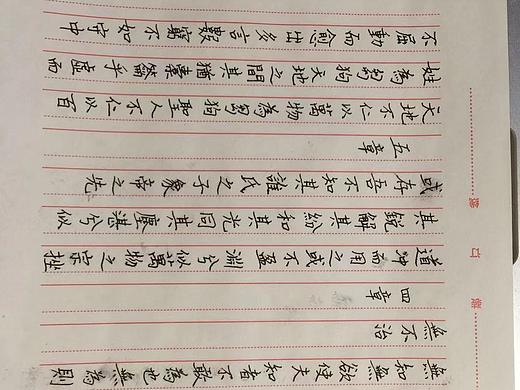 無知無欲使夫知者不敢為也無為則
無不治
四章
道沖而用之或不盈淵兮似萬物之宗挫
其銳解其紛和其光同其塵湛兮似
或存吾不知其誰氏之子象帝之先
五章
天地不仁以萬物為芻狗聖人不仁以百
姓為芻狗天地之間其猶橐籥乎虛而
不屈動而愈出多言數窮不如守中
裝 訂 线